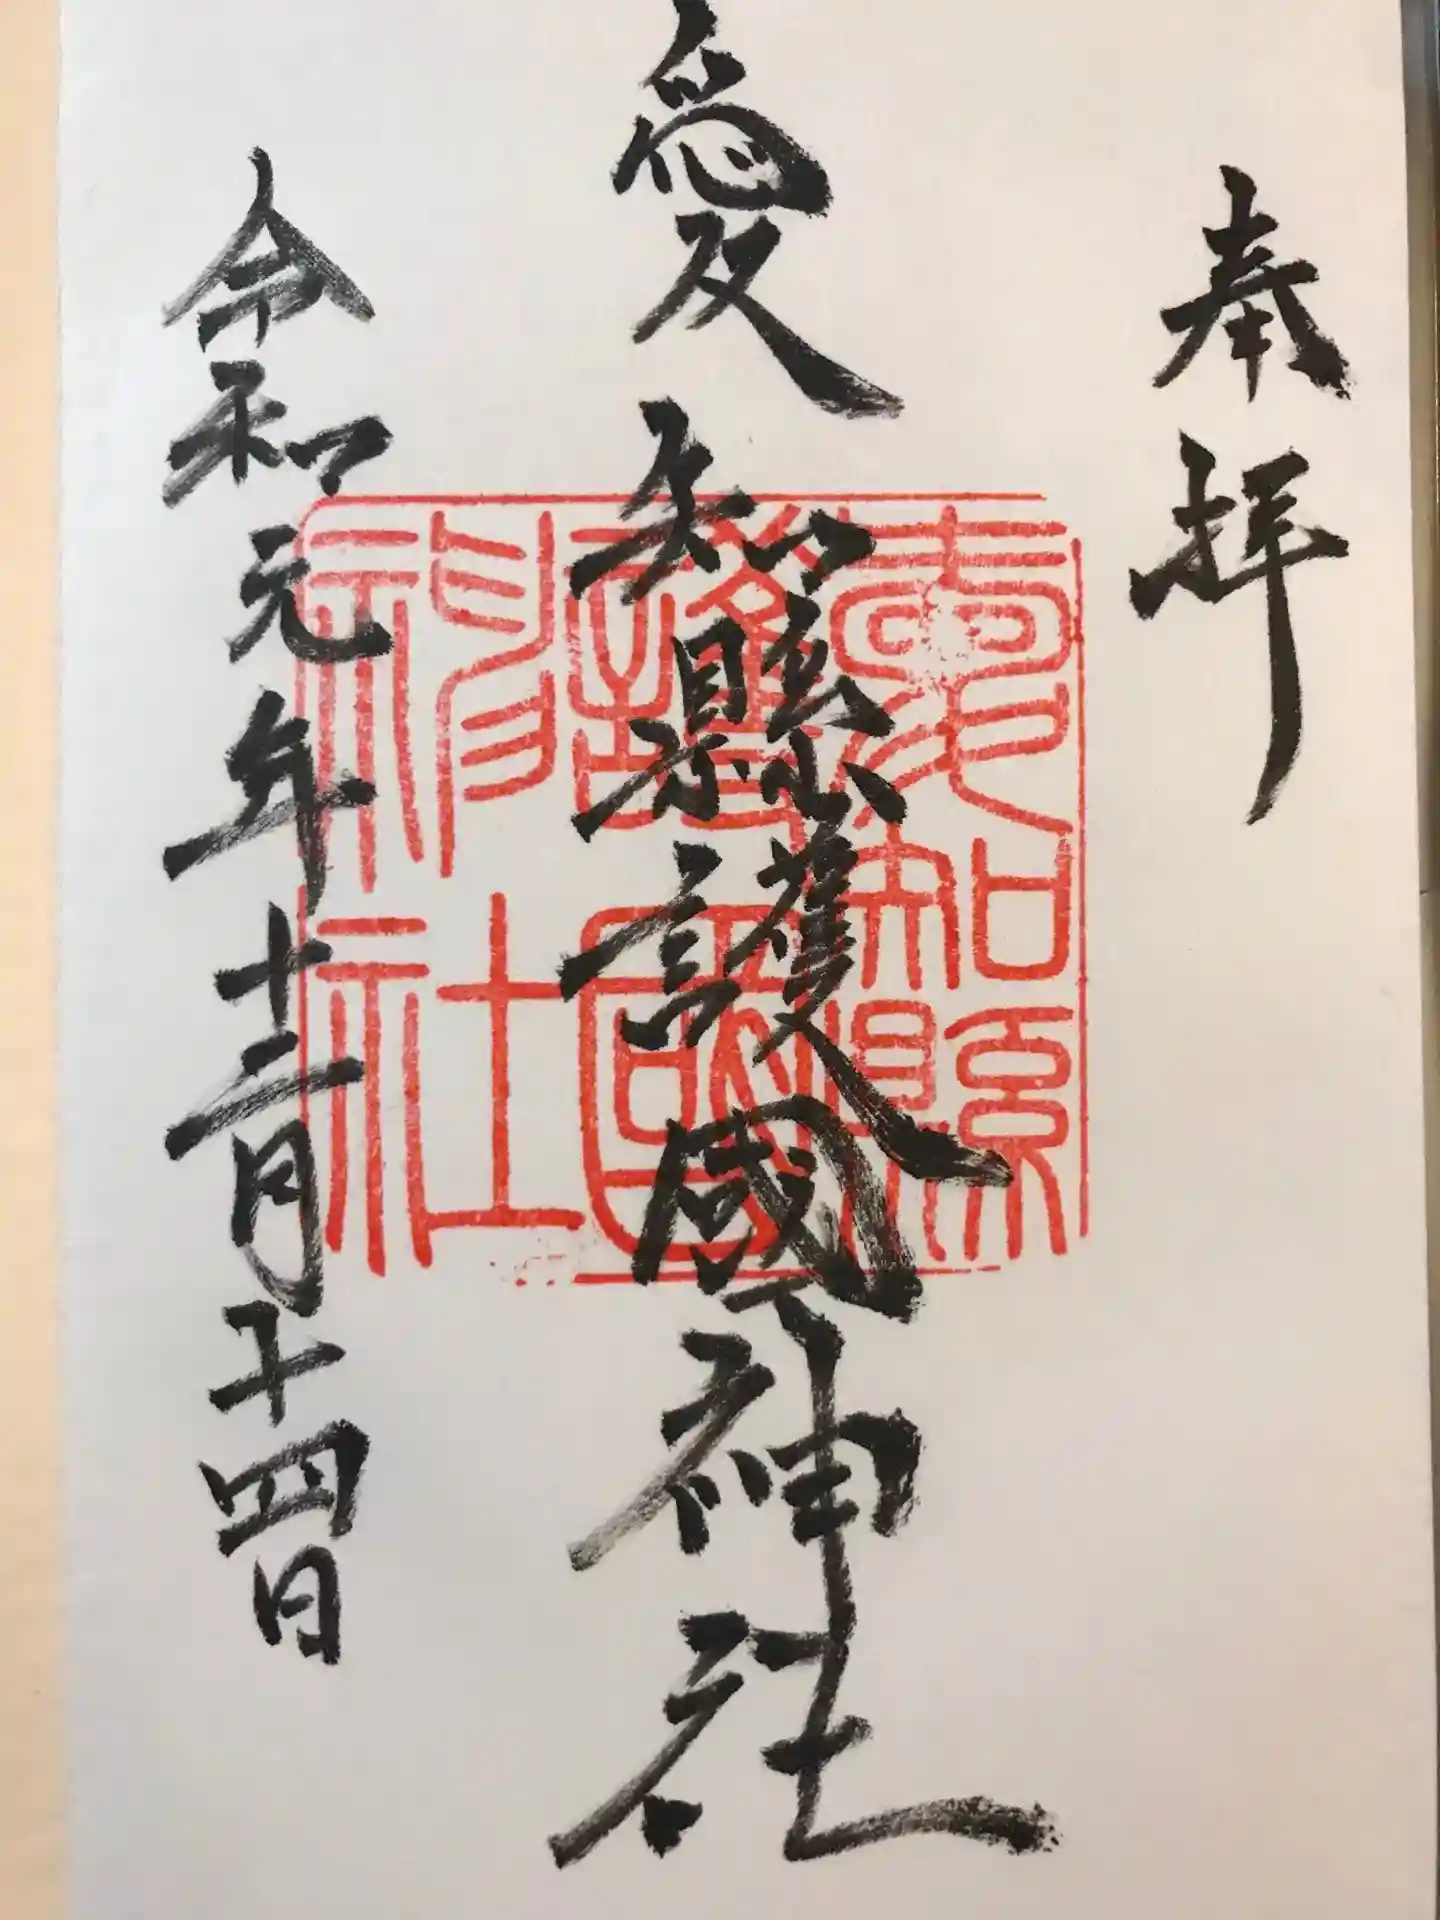 奉拝
愛知縣護國神社
愛知縣
護國
神社
令和元年十二月十四日